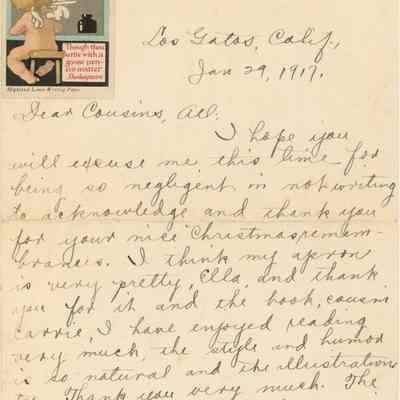 Though thou
write with a
goose pen
no matter
Shakespeare
Highland Linen Writing Paper
Los Gatos, Calif.,
Jan 29, 1917.
Dear Cousins, All:
I hope you
will excuse me this time for
being so negligent in not writing
to acknowledge and thank you
for your nice Christmas remem-
brances. I think my apron
is very pretty, Ella, and thank
you for it and the book, cousin
Carrie, I have enjoyed reading
very much, the style and humor
is so natural and the illustrations
too. Thank you very much. The